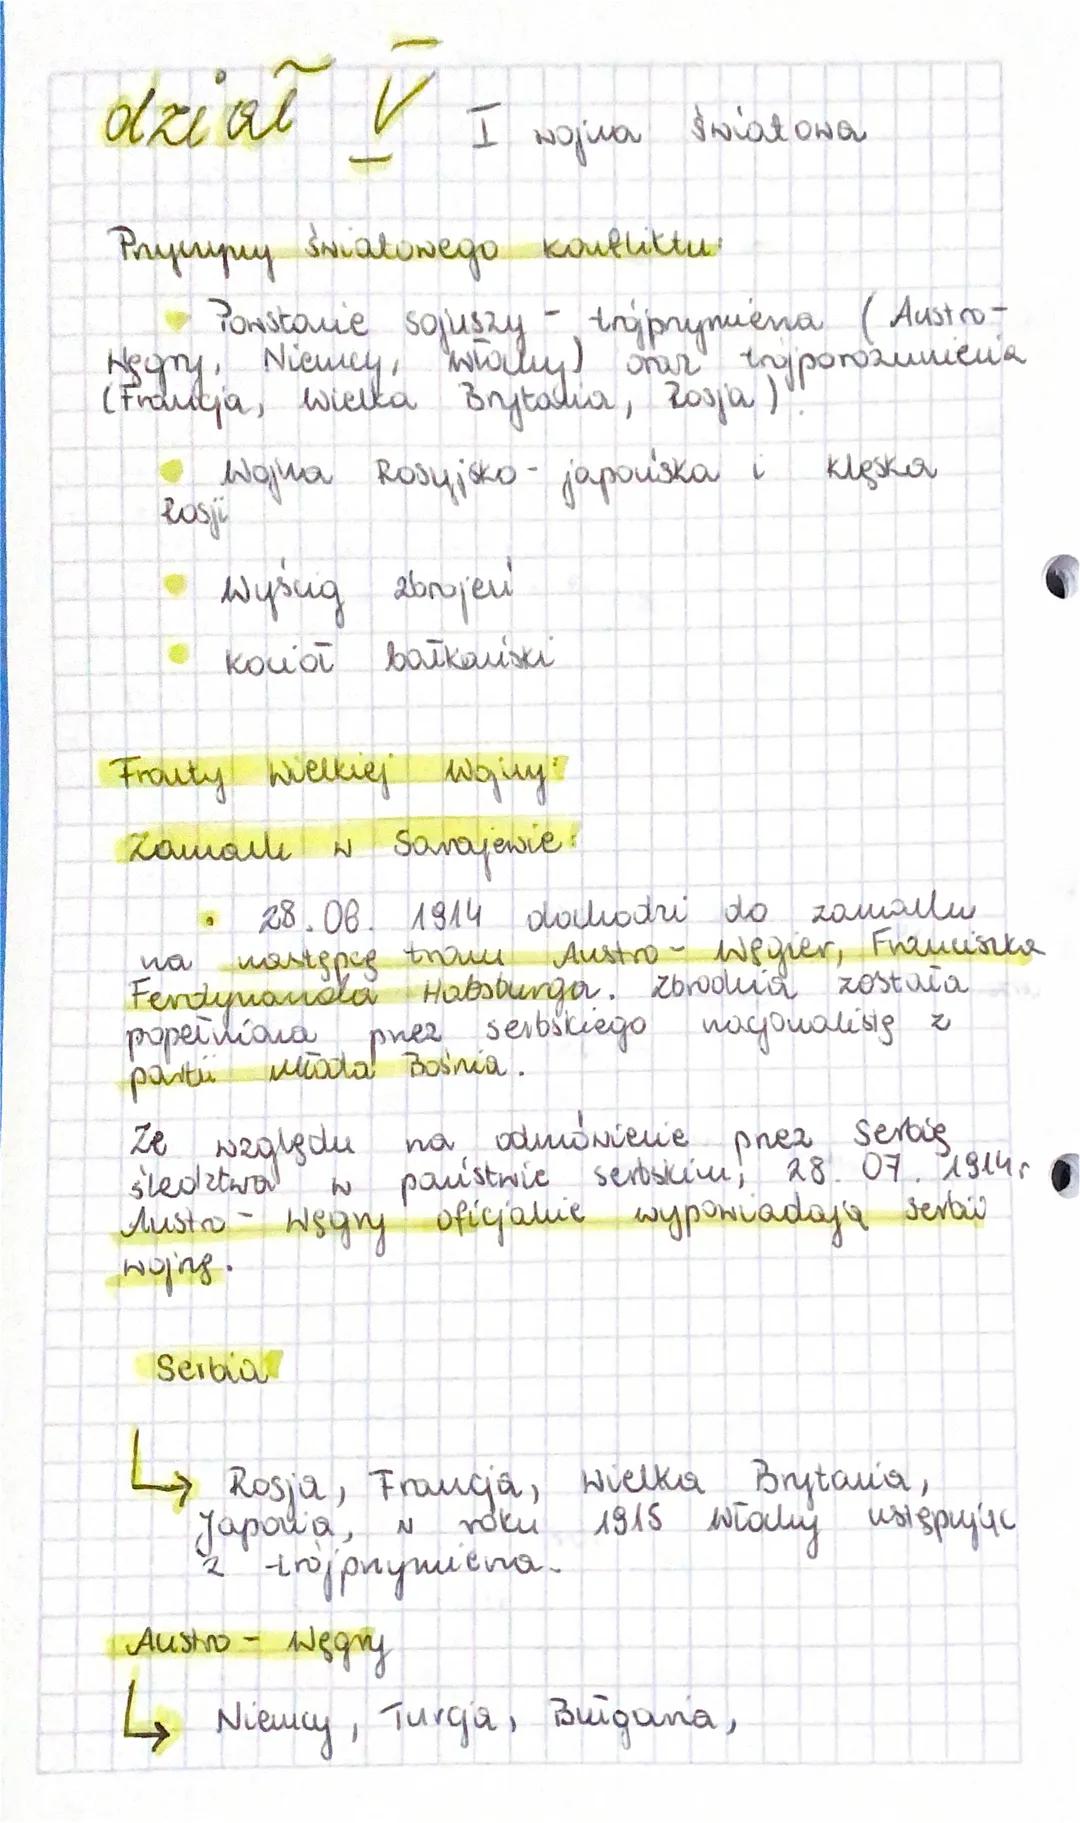 dział V I wojna światowa
Przyczyny światowego konfliktu:
• Powstanie sojuszy - trójprzymierza (Austro-
Węgry, Niemcy, Włochy) oraz trójporozumienia
(Francja, Wielka Brytania, Rosja).
• Wojna Rosyjsko - japońska i klęska
Rosji
• Wyścig zbrojeń
• kocioł bałkański
Fronty Wielkiej Wojny:
Zamach w Sarajewie:
• 28.06. 1914 dochodzi do zamachu
na następcę tronu Austro - Węgier, Franciszka
Ferdynanda Habsburga. Zbrodnia została
popełniona przez serbskiego nacjonalistę z
partii Młoda Bośnia.
Ze względu na odmówienie przez Serbię
śledztwa w państwie serbskim, 28. 07. 1914r
Austro - Węgry oficjalnie wypowiadają Serbii
wojnę.
Serbia
↳ Rosja, Francja, Wielka Brytania,
Japonia, w roku 1915 Włochy ustępując
z trójprzymierza.
Austro - Węgry
↳ Niemcy, Turcja, Bułgaria,